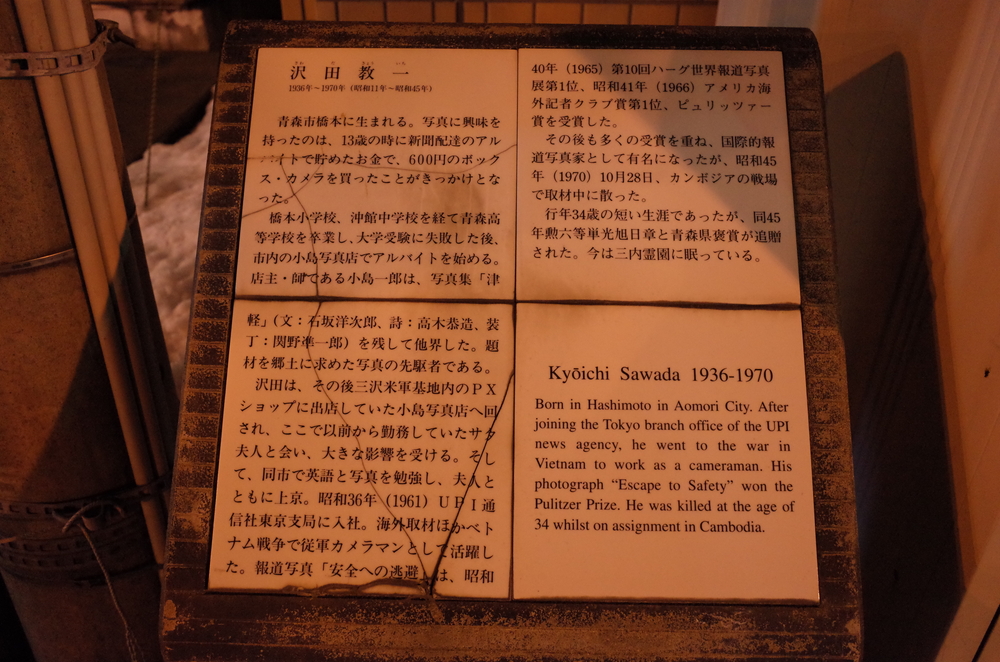 さわ だ きょう いち
沢田教一
1936年~1970年(昭和11年~昭和45年)
青森市橋本に生まれる。写真に興味を
持ったのは、13歳の時に新聞配達のアル
バイトで貯めたお金で、600円のボック
ス・カメラを買ったことがきっかけとな
った。
橋本小学校、沖館中学校を経て青森高
等学校を卒業し、大学受験に失敗した後、
市内の小島写真店でアルバイトを始める。
店主・師である小島一郎は、写真集「津
軽」(文:石坂洋次郎、詩:高木恭造、装
丁:関野凖一郎)を残して他界した。題
材を郷土に求めた写真の先駆者である。
沢田は、その後三沢米軍基地内のPX
ショップに出店していた小島写真店へ回
され、ここで以前から勤務していたサタ
夫人と会い、大きな影響を受ける。そし
て、同市で英語と写真を勉強し、夫人と
ともに上京。昭和36年(1961)UPI通
信社東京支局に入社。海外取材ほかベト
ナム戦争で従軍カメラマンとして活躍し
た。報道写真「安全への逃避」は、昭和
40年(1965)第10回ハーグ世界報道写真
展第1位、昭和41年(1966)アメリカ海
外記者クラブ賞第1位、ピュリッツァー
賞を受賞した。
その後も多くの受賞を重ね、国際的報
道写真家として有名になったが、昭和45
年(1970)10月28日、カンボジアの戦場
で取材中に散った。
行年34歳の短い生涯であったが、同45
年勲六等単光旭日章と青森県褒賞が追贈
された。今は三内霊園に眠っている。
Kyōichi Sawada 1936-1970
Born in Hashimoto in Aomori City. After
joining the Tokyo branch office of the UPI
news agency, he went to the war in
Vietnam to work as a cameraman. His
photograph “Escape to Safety” won the
Pulitzer Prize. He was killed at the age of
34 whilst on assignment in Cambodia.